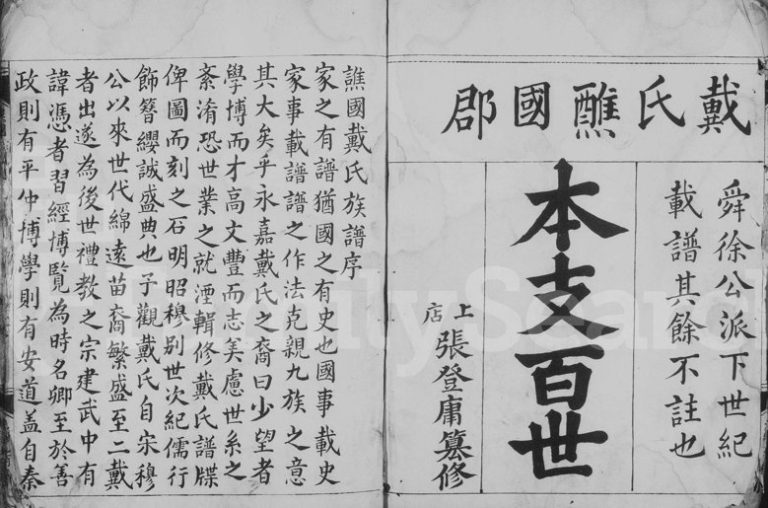 戴氏譙國郡
舜徐公派下世紀
載譜其餘不註也
本支百世
上店
張登庸纂修
譙國戴氏族譜序
家之有譜猶國之有史也國事載史
家事載譜譜之作法克親九族之意
其大矣乎永嘉戴氏之裔曰少望者
學博而才高文豐而志美慮世系之
紊淆恐世業之就湮輯修戴氏譜牒
俾圖而刻之石明昭穆别世次紀儒行
飾簪纓誠盛典也予觀戴氏自宋穆
公以來世代綿遠苗裔繁盛至二戴
者出遂為後世禮教之宗建武中有
諱憑者習經博覽為時名卿至於善
政則有平仲博學則有安道盖自秦
FamilySearch